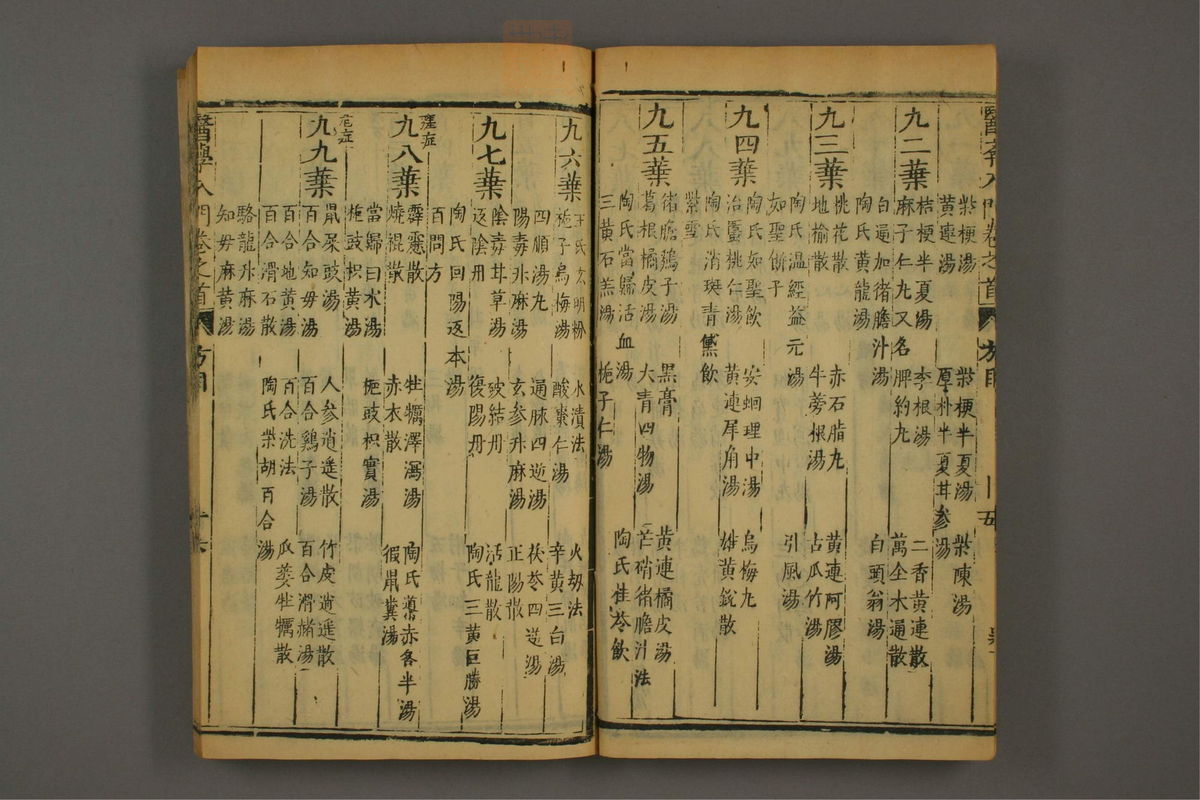 醫學入門卷之首 方目 十五
柴梗湯 柴梗半夏湯 柴陳湯
黃連湯 厚朴半夏甘參湯
九二葉
桔梗半夏湯 李根湯 二香黃連散
麻子仁丸又名脾約丸 萬全木通散
白通加猪膽汁湯 白頭翁湯
陶氏黃龍湯
九三葉
桃花散 赤石脂丸 黃連阿膠湯
地榆散 牛蒡根湯 占瓜竹湯
陶氏温經益元湯 引風湯
如聖餅子
九四葉
陶氏知聖飲 安蛔理中湯 烏梅丸
治䘌桃仁湯 黃連犀角湯 雄黃銳散
陶氏消斑青黛飲
紫雪
九五葉
猪膽鷄子湯 黑膏 黃連橘皮湯
葛根橘皮湯 大青四物湯 芒硝猪膽汁法
陶氏當歸活血湯 陶氏桂苓飲
三黃石羔湯 梔子仁湯
九六葉
王氏玄明粉 水漬法 火刼法
梔子烏梅湯 酸棗仁湯 辛黃三白湯
四順湯丸 通脉四逆湯 茯苓四逆湯
陽毒升麻湯 玄參升麻湯 正陽散
九七葉
陰毒甘草湯 破結丹 活龍散
返陰丹 復陽丹 陶氏三黃巨勝湯
陶氏回陽返本湯
百問方
壞症
九八葉
霹靂散 牡蠣澤瀉湯 陶氏導赤各半湯
燒裩散 赤衣散 猳鼠糞湯
當歸白术湯
梔豉枳黃湯 梔豉枳實湯
危症
九九葉
鼠屎豉湯 人參逍遥散 竹皮逍遥散
百合知毋湯 百合鷄子湯 百合滑赭湯
百合地黃湯 百合洗法 瓜蔞牡蠣散
百合滑石散 陶氏柴胡百合湯
駱龍升麻湯
知毋麻黃湯
醫學入門卷之首 方目 十六